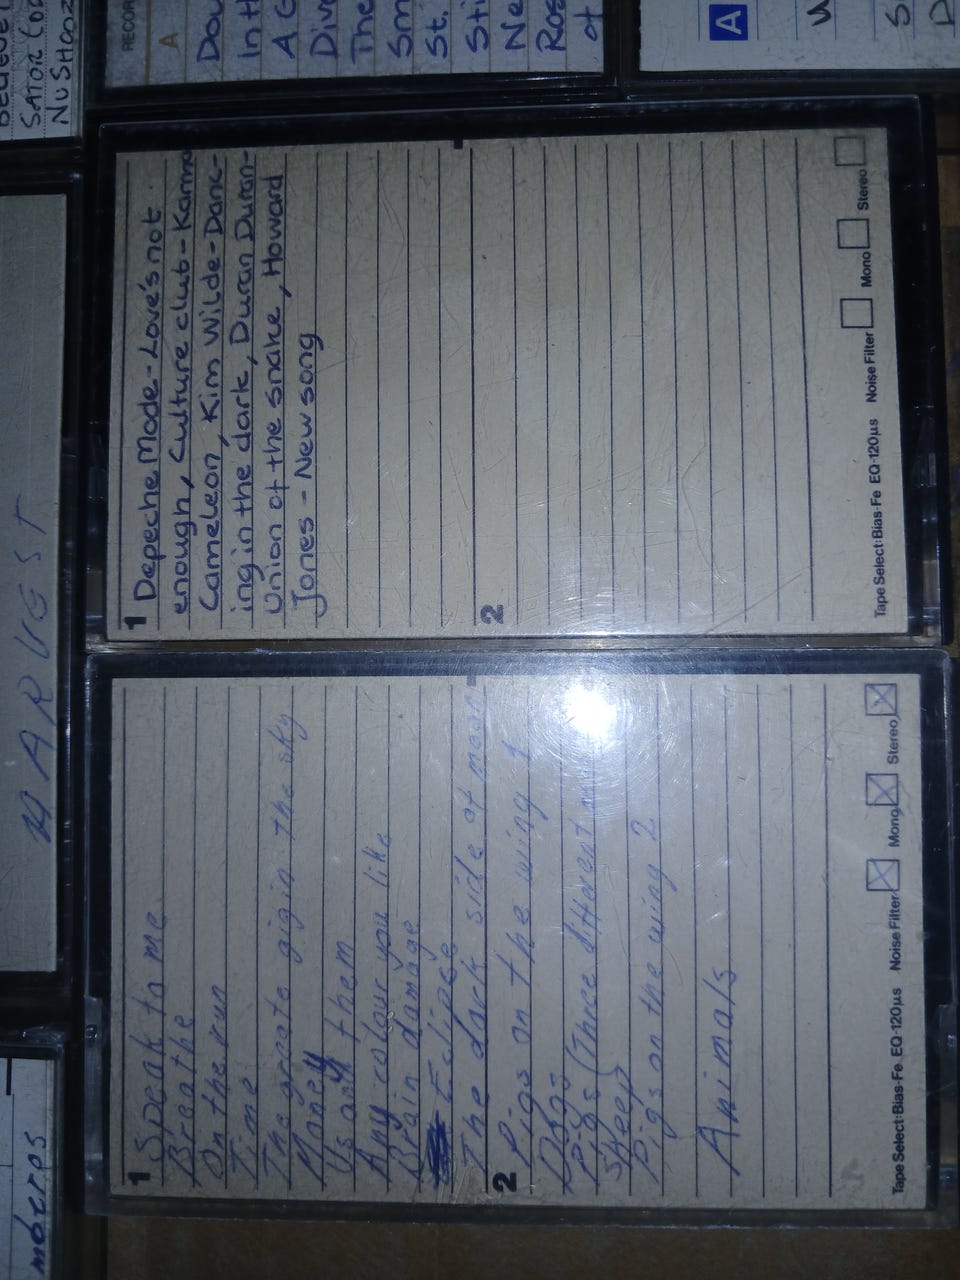 1
Depeche Mode - Love's not
enough, Culture club - Karma
Cameleon, Kim Wilde - Danc-
ing in the dark, Duran Duran -
Union of the snake, Howard
Jones - New song
2
Tape Select: Bias-Fe EQ-120µs Noise Filter Mono Stereo
1
Speak to me
Breathe
On the run
Time
The greate gig in the sky
Money
Us and them
Any colour you like
Brain damage
Eclipse
The dark side of moon
2
Pigs on the wing 1
Dogs
Pigs (Three different
Sheep
Pigs on the wing 2
Animals
Tape Select: Bias-Fe EQ-120µs Noise Filter Mono Stereo
MARUGST
SATOR
NU SHOOZ
RECOR
A
Dou
In th
A G
Div
The
Sm
St.
Sti
Ne
Ros
of
A
mbers